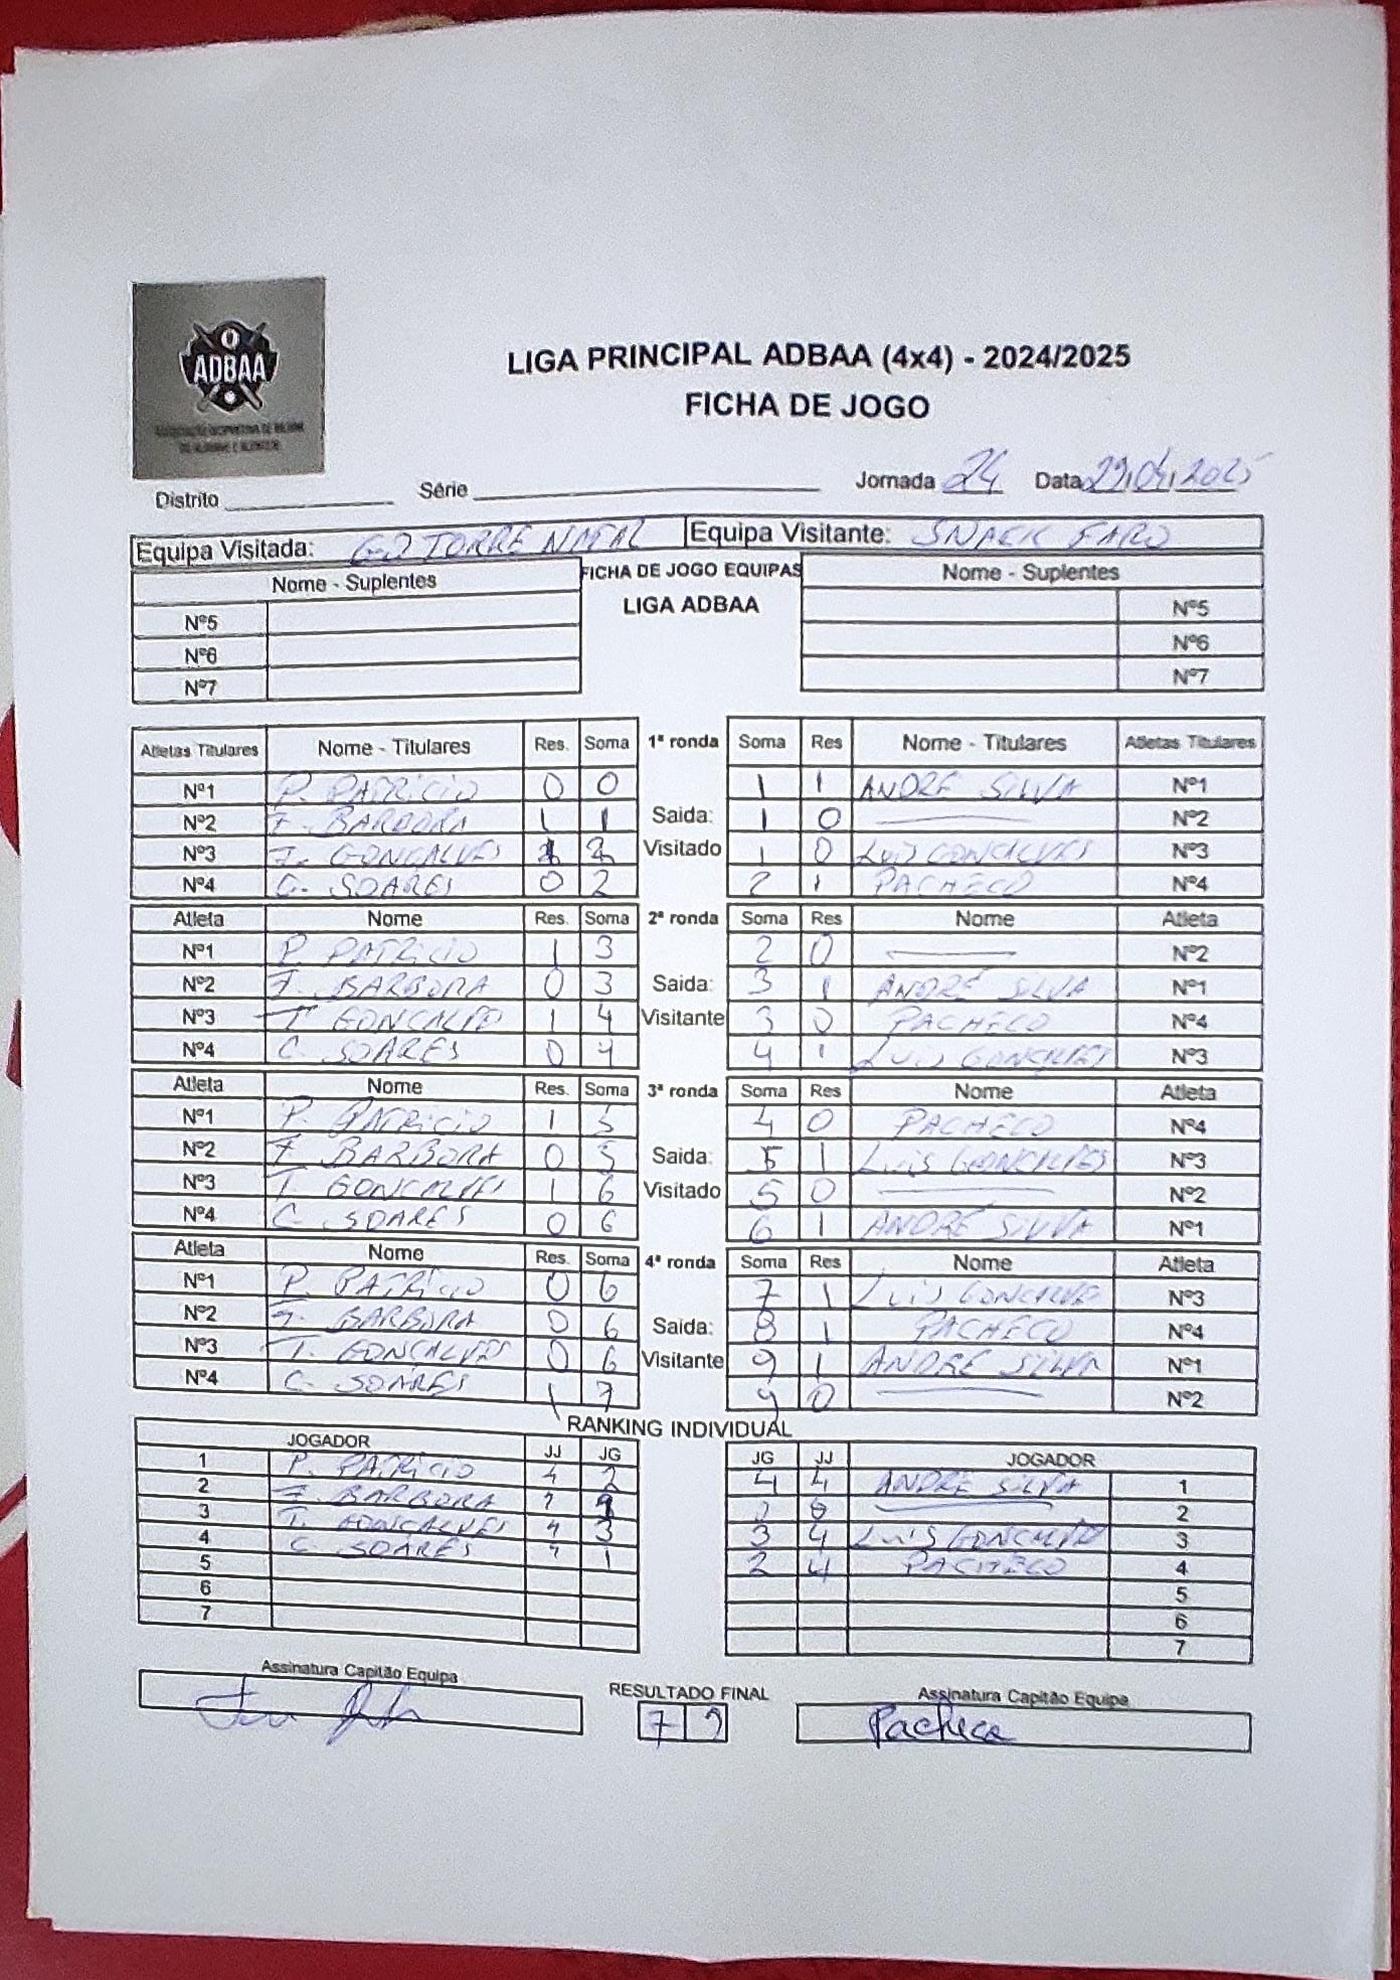 ADBAA
LIGA PRINCIPAL ADBAA (4x4) - 2024/2025
FICHA DE JOGO
Distrito Série Jornada 24 Data 2025
Equipa Visitada: GD TORRE NATAL Equipa Visitante: SNACK FARO
Nome - Suplentes FICHA DE JOGO EQUIPAS Nome - Suplentes
LIGA ADBAA
Nº5 Nº5
Nº6 Nº6
Nº7 Nº7
Atletas Titulares Nome - Titulares Res. Soma 1ª ronda Soma Res Nome - Titulares Atletas Titulares
Nº1 P. PATRICIO 0 0 1 1 ANDRE SILVA Nº1
Nº2 F. BARBORA 1 1 Saida: 1 0 Nº2
Nº3 T. GONCALVES 1 2 Visitado 1 0 LUIS GONCALVES Nº3
Nº4 C. SOARES 0 2 2 1 PACHECO Nº4
Atleta Nome Res. Soma 2ª ronda Soma Res Nome Atleta
Nº1 P. PATRICIO 1 3 2 0 Nº2
Nº2 F. BARBORA 0 3 Saida: 3 1 ANDRÉ SILVA Nº1
Nº3 T. GONCALVES 1 4 Visitante 3 0 PACHECO Nº4
Nº4 C. SOARES 0 4 4 1 LUIS GONCALVES Nº3
Atleta Nome Res. Soma 3ª ronda Soma Res Nome Atleta
Nº1 P. PATRICIO 1 5 4 0 PACHECO Nº4
Nº2 F BARBORA 0 5 Saida: 5 1 LUIS GONCALVES Nº3
Nº3 T. GONCALVES 1 6 Visitado 5 0 Nº2
Nº4 C. SOARES 0 6 6 1 ANDRÉ SILVA Nº1
Atleta Nome Res. Soma 4ª ronda Soma Res Nome Atleta
Nº1 P. PATRICIO 0 6 7 1 LUIS GONCALVE Nº3
Nº2 F. BARBORA 0 6 Saida: 8 1 PACHECO Nº4
Nº3 T. GONCALVES 0 6 Visitante 9 1 ANDRE SILVA Nº1
Nº4 C. SOARES 1 7 9 0 Nº2
RANKING INDIVIDUAL
JOGADOR JJ JG JG JJ JOGADOR
1 P. PATRICIO 4 2 4 4 ANDRE SILVA 1
2 F. BARBORA 4 2
3 T. GONCALVES 4 3 3 4 LUIS GONCALVES 3
4 C. SOARES 4 1 2 4 PACHECO 4
5 5
6 6
7 7
Assinatura Capitão Equipa RESULTADO FINAL Assinatura Capitão Equipa
7 9 Pacheco